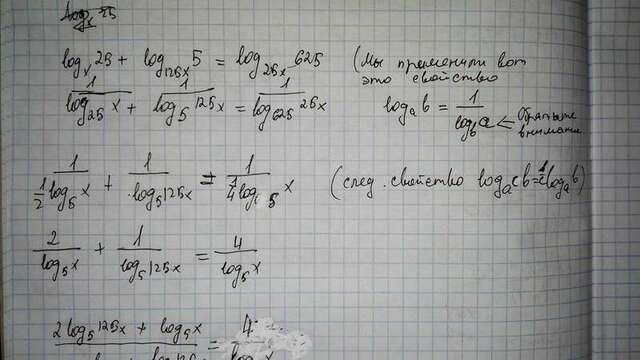 log_x 25
log_x 25 + log_125x 5 = log_25x 625 (Мы применили вот это свойство
1/log_25 x + 1/log_5 125x = 1/log_625 25x log_a b = 1/log_b a ← внимание
1/(1/2 log_5 x) + 1/log_5 125x = 1/(1/4 log_5 x) (след. свойство
2/log_5 x + 1/log_5 125x = 4/log_5 x
2log_5 125x + log_5 x = 4